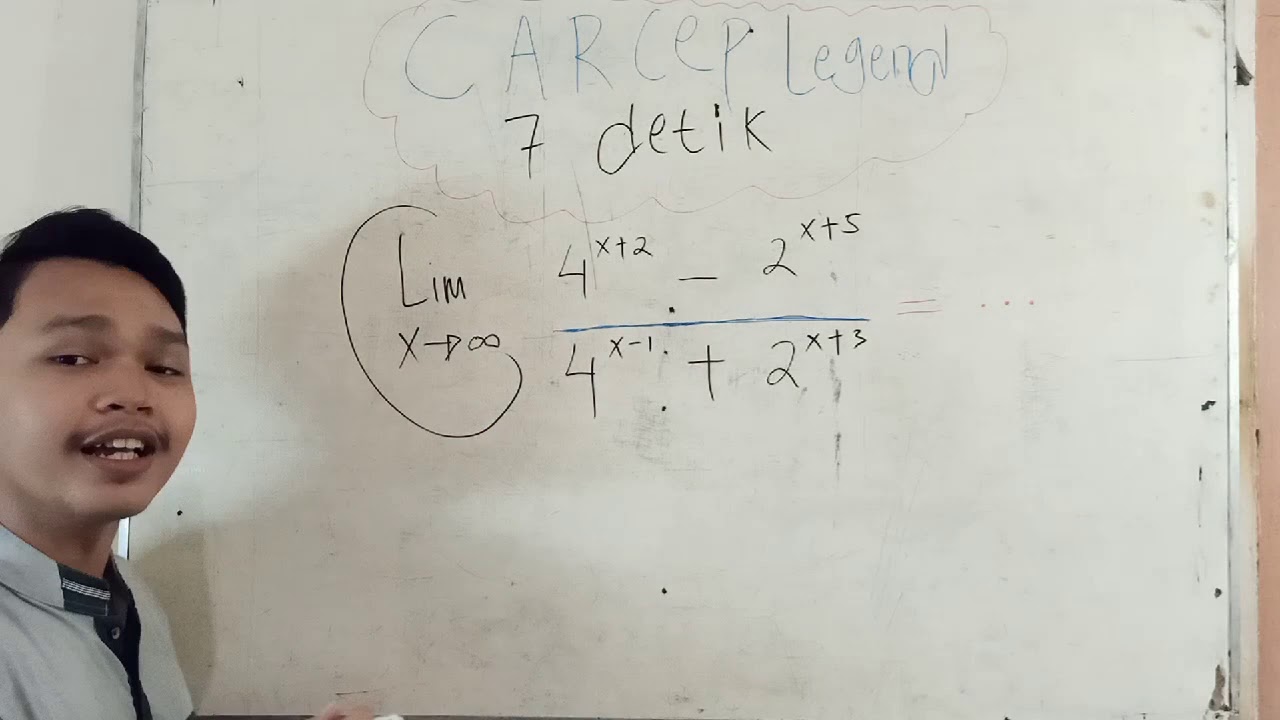 CARCEP Legend
7 detik
Lim x→∞ (4^(x+2) - 2^(x+5)) / (4^(x-1) + 2^(x+3)) = ...